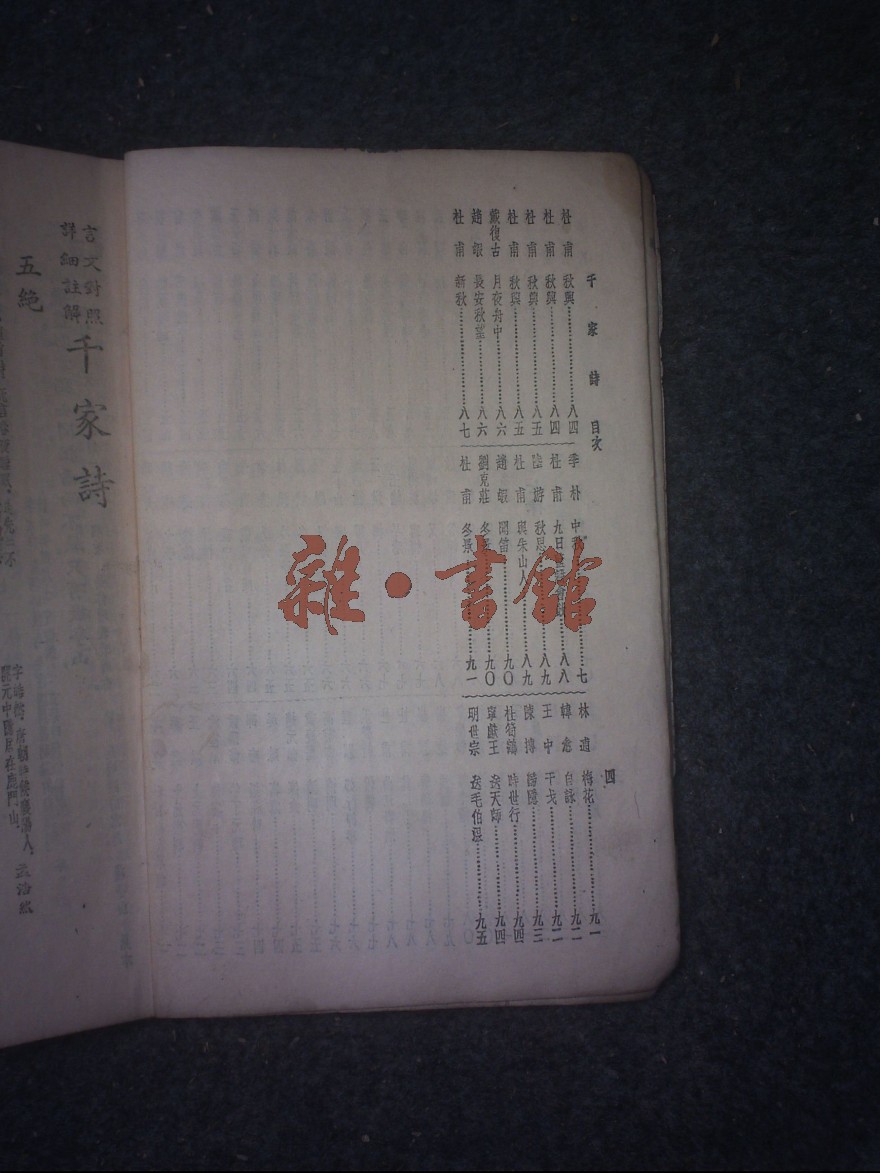 千家詩 目次 四
杜甫 秋興 八四
杜甫 秋興 八四
杜甫 秋興 八五
杜甫 秋興 八五
戴復古 月夜舟中 八六
趙嘏 長安秋望 八六
杜甫 新秋 八七
季朴 中秋 七
杜甫 九日 八八
陸游 秋思 八九
杜甫 與朱山人 八九
趙嘏 聞笛 九〇
劉克莊 冬景 九〇
杜甫 冬景 九一
林逋 梅花 九一
韓偓 自詠 九二
王中 干戈 九二
陳摶 歸隱 九三
杜荀鶴 時世行 九四
寧獻王 送天師 九四
明世宗 送毛伯溫 九五
言文對照
詳細註解
千家詩
五絕
雜·書館